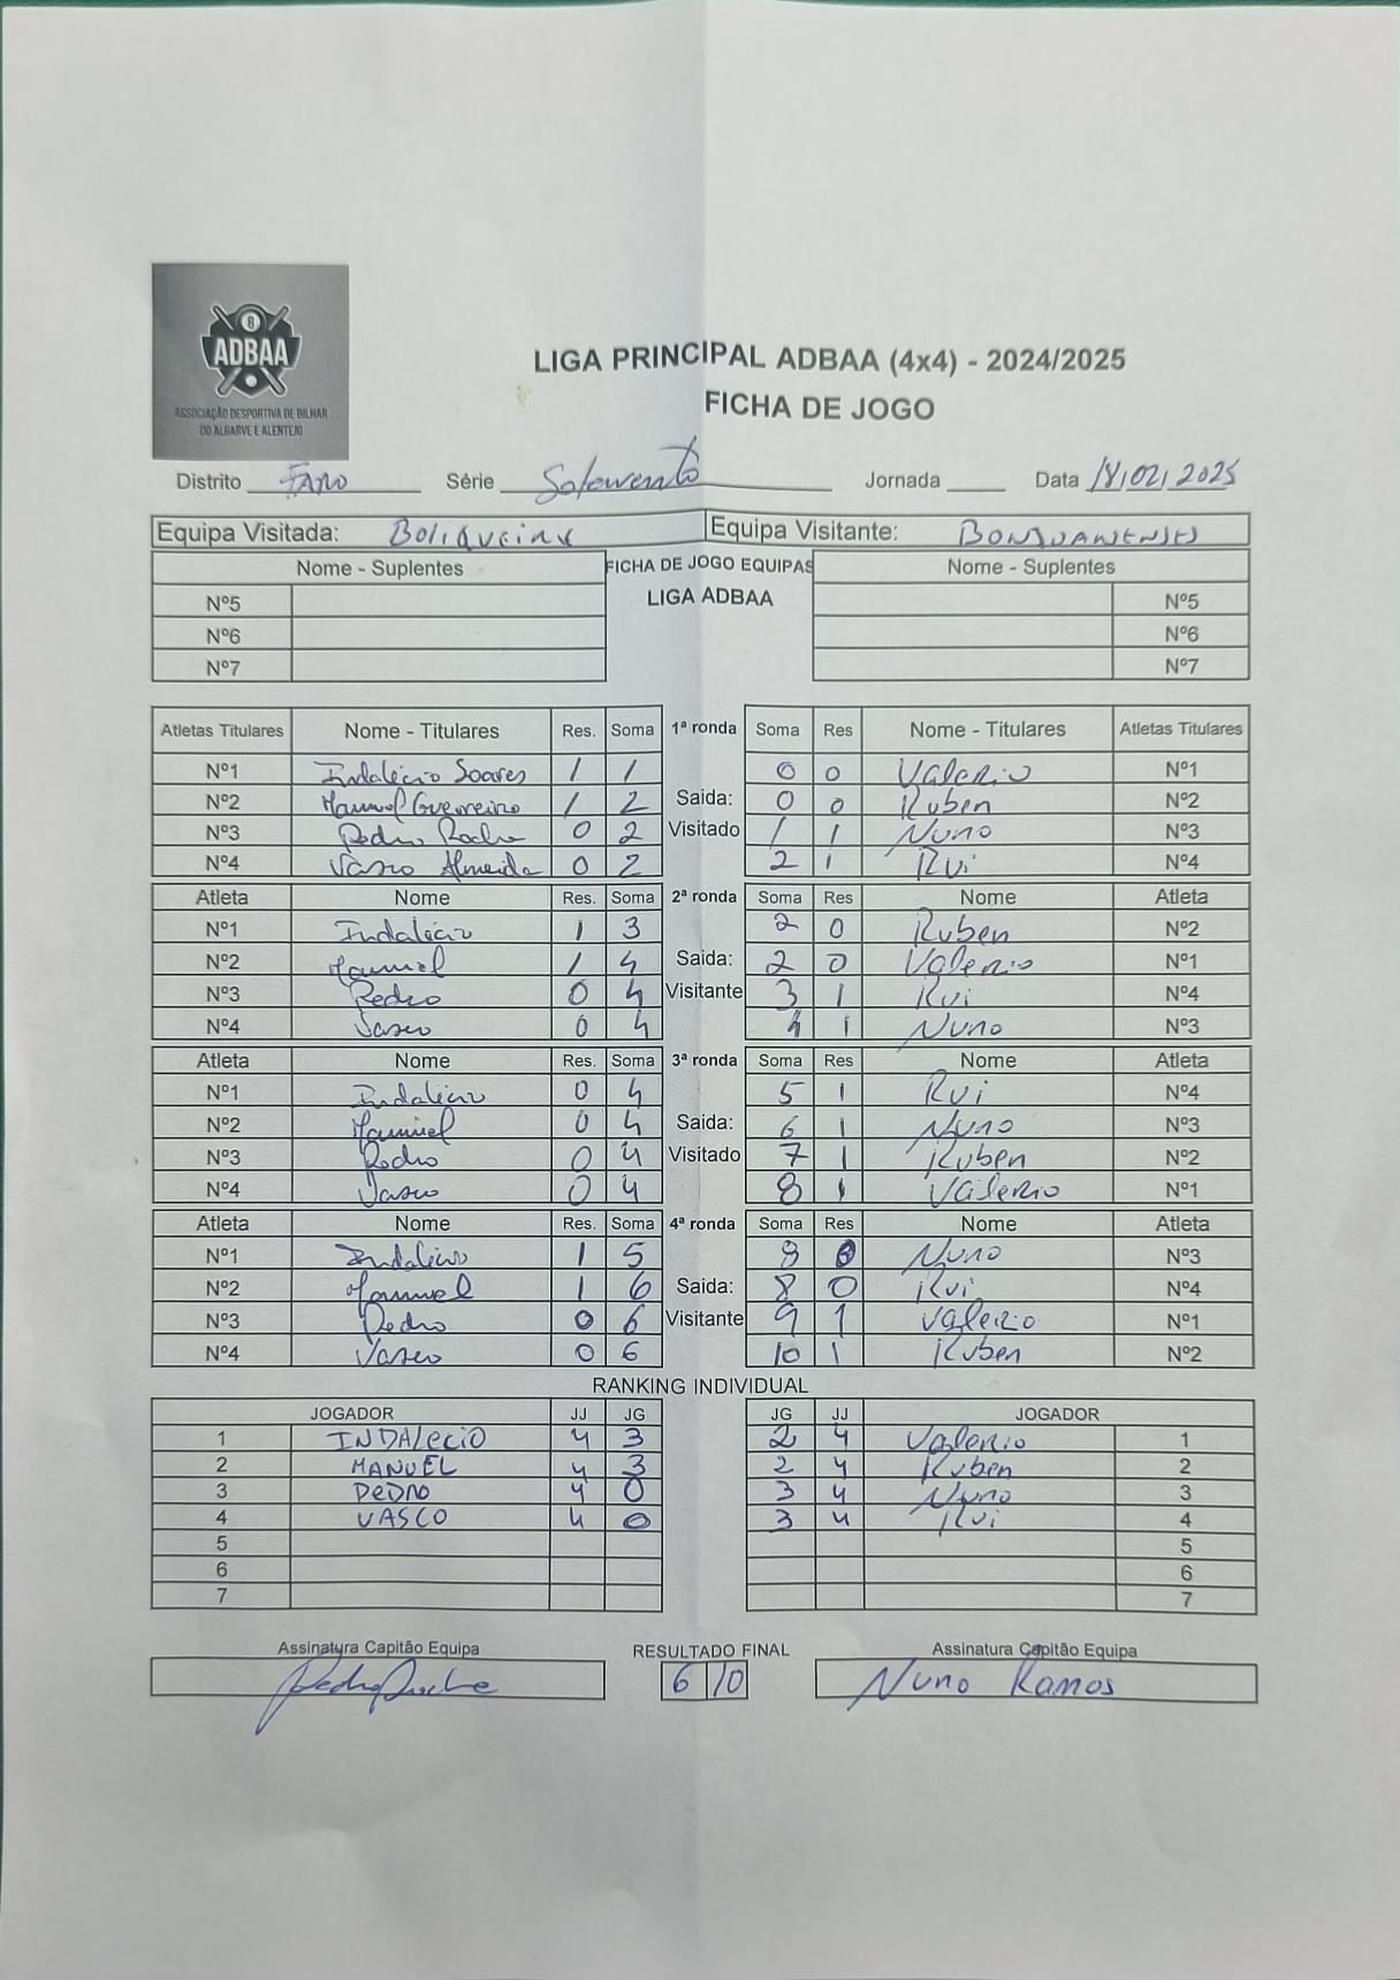 8
ADBAA
ASSOCIAÇÃO DESPORTIVA DE BILHAR
DO ALGARVE E ALENTEJO
LIGA PRINCIPAL ADBAA (4x4) - 2024/2025
FICHA DE JOGO
Distrito FARO Série Sotavento Jornada Data 18/02/2025
Equipa Visitada: Boliqueime Equipa Visitante: BONJOANENSES
Nome - Suplentes FICHA DE JOGO EQUIPAS Nome - Suplentes
LIGA ADBAA
Nº5 Nº5
Nº6 Nº6
Nº7 Nº7
Atletas Titulares Nome - Titulares Res. Soma 1ª ronda Soma Res Nome - Titulares Atletas Titulares
Nº1 Indalécio Soares 1 1 0 0 Valerio Nº1
Nº2 Manuel Guerreiro 1 2 Saida: 0 0 Ruben Nº2
Nº3 Pedro Rocha 0 2 Visitado 1 1 Nuno Nº3
Nº4 Vasco Almeida 0 2 2 1 Rui Nº4
Atleta Nome Res. Soma 2ª ronda Soma Res Nome Atleta
Nº1 Indalécio 1 3 2 0 Ruben Nº2
Nº2 Manuel 1 4 Saida: 2 0 Valerio Nº1
Nº3 Pedro 0 4 Visitante 3 1 Rui Nº4
Nº4 Vasco 0 4 4 1 Nuno Nº3
Atleta Nome Res. Soma 3ª ronda Soma Res Nome Atleta
Nº1 Indalécio 0 4 5 1 Rui Nº4
Nº2 Manuel 0 4 Saida: 6 1 Nuno Nº3
Nº3 Pedro 0 4 Visitado 7 1 Ruben Nº2
Nº4 Vasco 0 4 8 1 Valerio Nº1
Atleta Nome Res. Soma 4ª ronda Soma Res Nome Atleta
Nº1 Indalécio 1 5 8 0 Nuno Nº3
Nº2 Manuel 1 6 Saida: 8 0 Rui Nº4
Nº3 Pedro 0 6 Visitante 9 1 Valerio Nº1
Nº4 Vasco 0 6 10 1 Ruben Nº2
RANKING INDIVIDUAL
JOGADOR JJ JG JG JJ JOGADOR
1 INDALECIO 4 3 2 4 Valerio 1
2 MANUEL 4 3 2 4 Ruben 2
3 PEDRO 4 0 3 4 Nuno 3
4 VASCO 4 0 3 4 Rui 4
5 5
6 6
7 7
Assinatura Capitão Equipa RESULTADO FINAL Assinatura Capitão Equipa
Pedro Rocha 6 10 Nuno Ramos